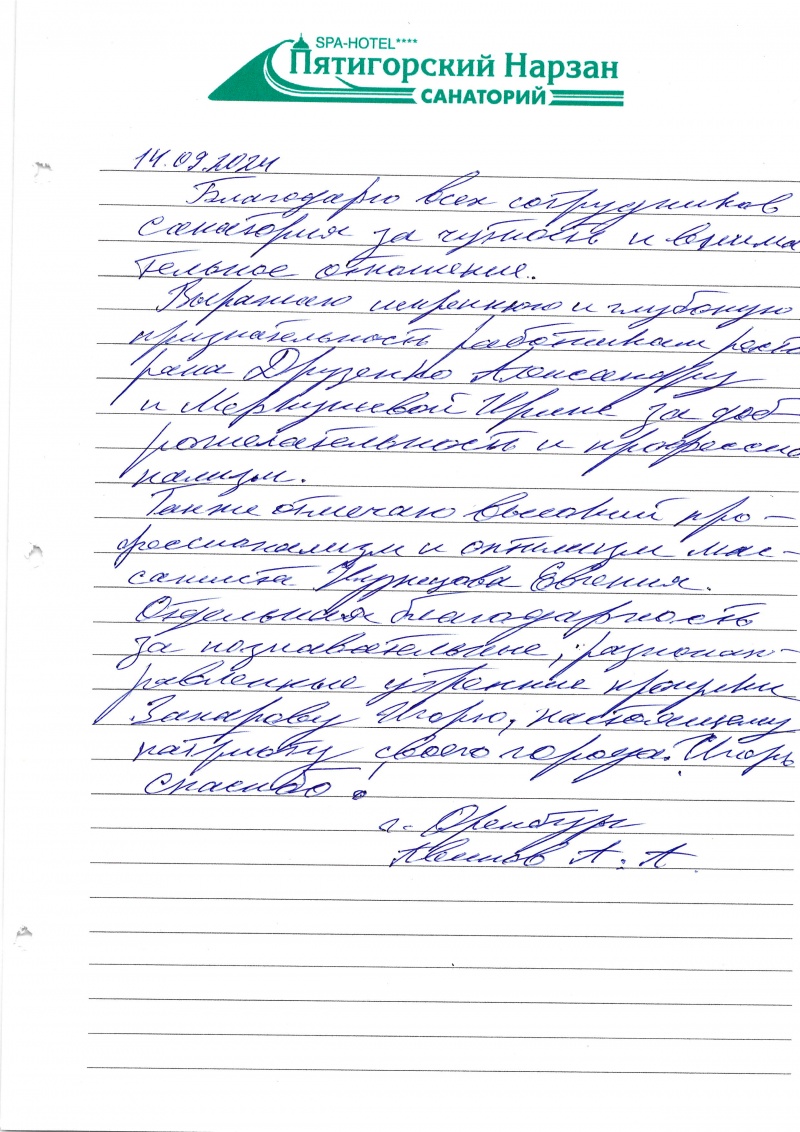 SPA-HOTEL****
Пятигорский Нарзан
САНАТОРИЙ
14.09.2024
Благодарю всех сотрудников
санатория за чуткость и внима
тельное отношение.
Выражаю искреннюю и глубокую
признательность работникам рест
рана Друзенко Александру
и Меркушевой Ирине за доб-
рожелательность и профессио
нализм.
Также отмечаю высокий про-
фессионализм и оптимизм мас-
сажиста Кузнецова Евгения.
Отдельная благодарность
за познавательные, разнонап-
равленные утренние прогулки
Захарову Игорю, настоящему
патриоту своего города. Игорь
спасибо!
г. Оренбург
А. А.